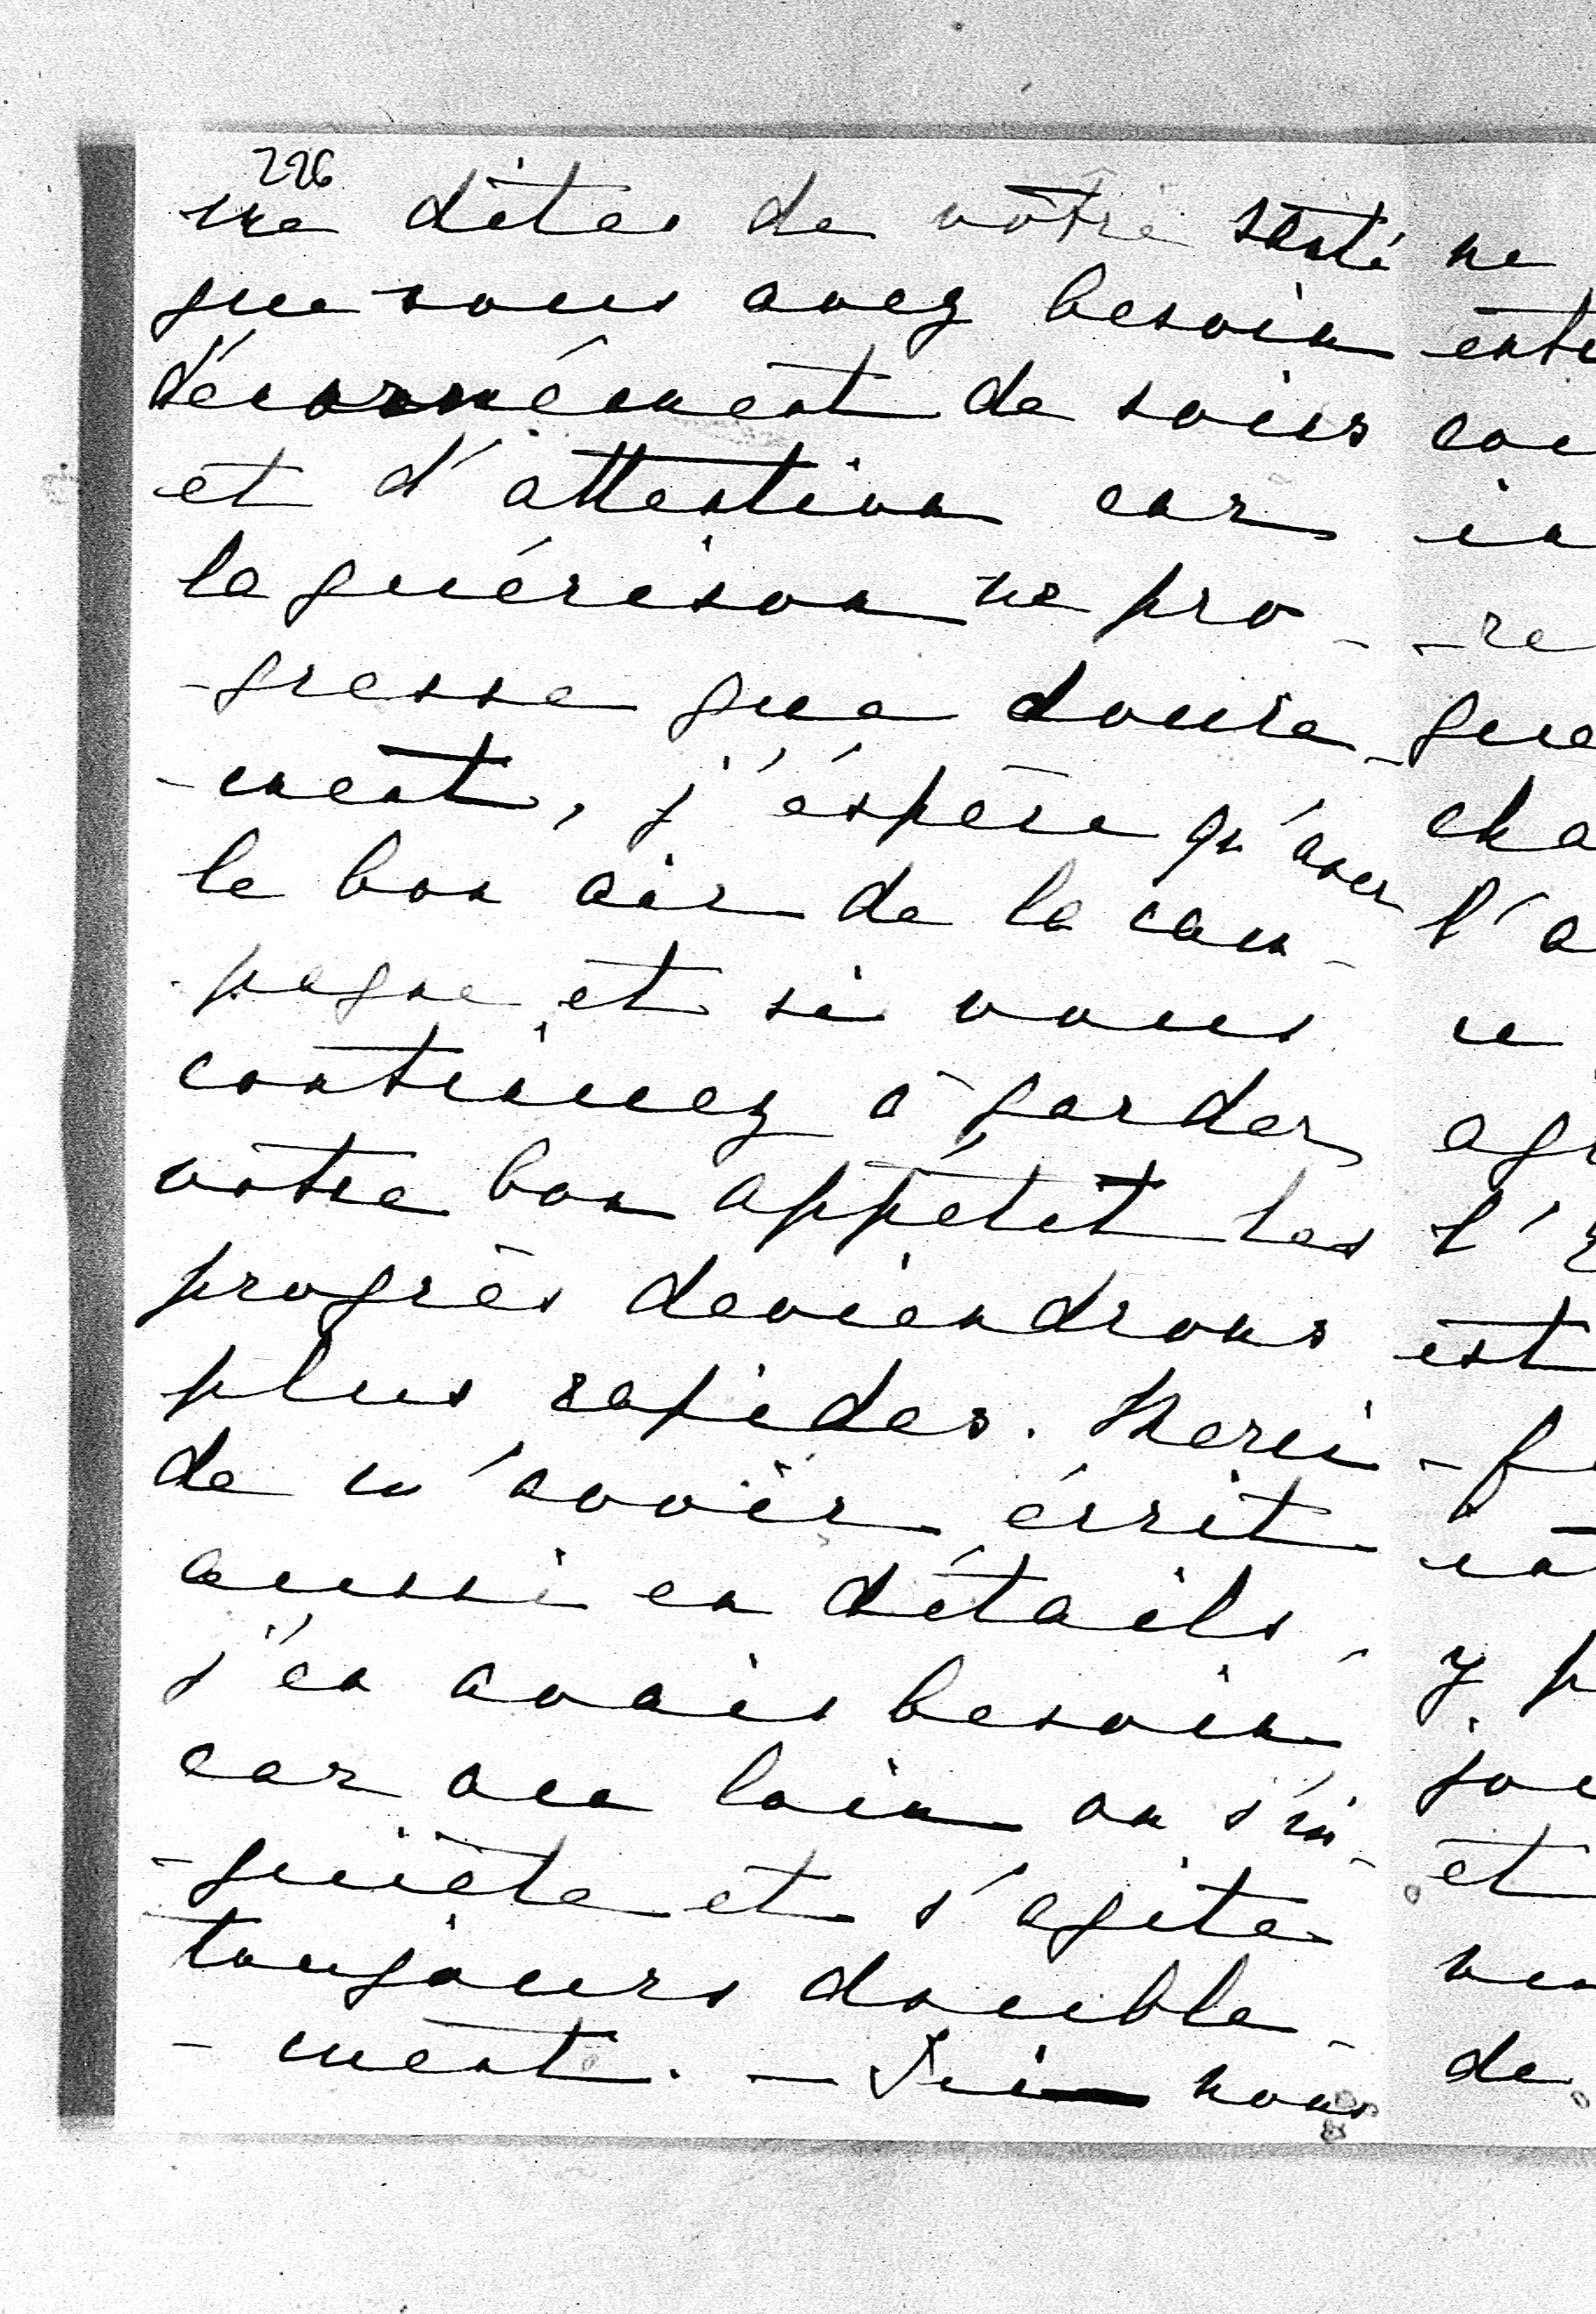 226
me dites de votre santé
que vous avez besoin
d'énormément de soins
et d'attention car
la guérison ne pro-
-gresse que douce-
-ment, j'éspère qu'avec
le bon air de la cam-
pagne et si vous
continuez à garder
votre bon appétit les
progrès deviendrons
plus rapides. Merci
de m'avoir écrit
aussi en détails,
j'en avais besoin
car au loin on s'in-
-quiète et s'agite
toujours double-
-ment. — Ici nous
ne
cha
l'a
est
y
et
de